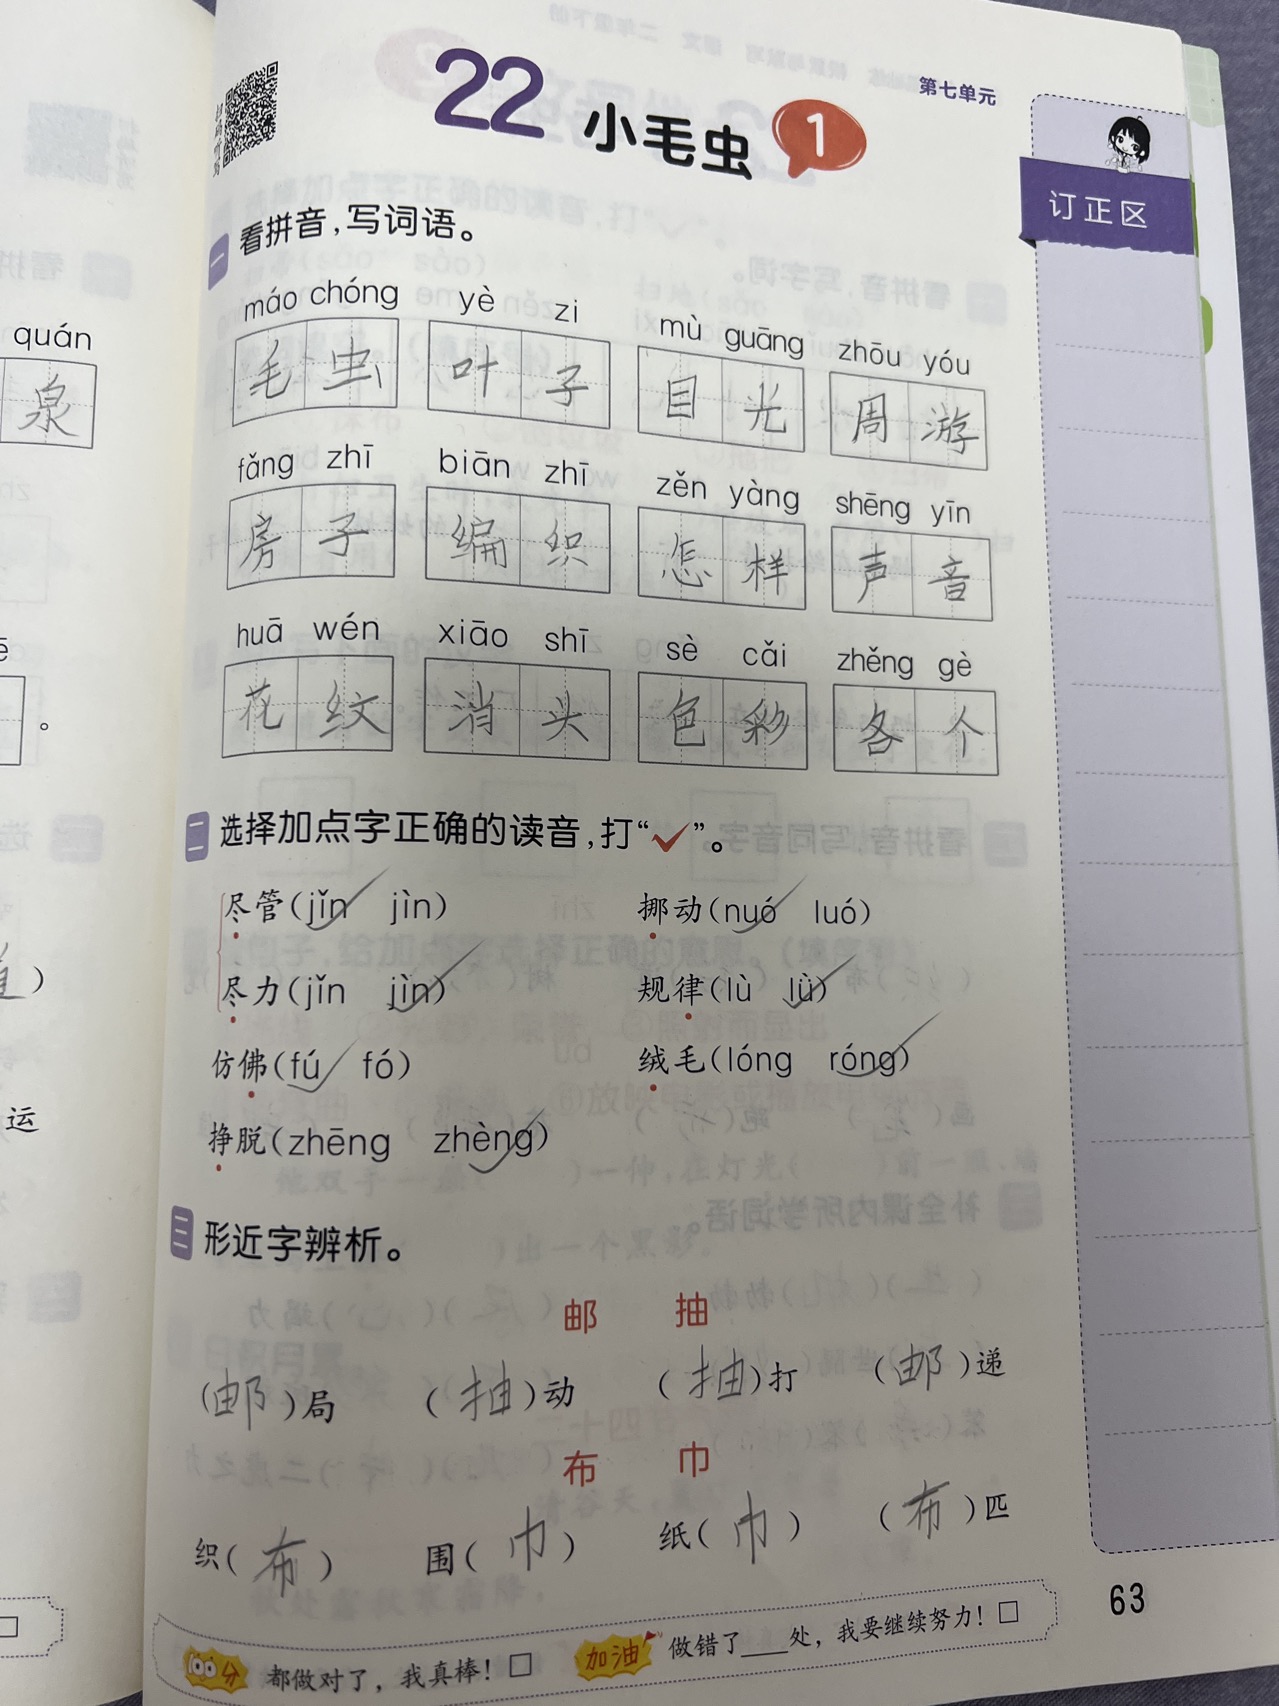 第七单元
22 小毛虫 1
订正区
一 看拼音，写词语。
máo chóng yè zi mù guāng zhōu yóu
毛虫 叶子 目光 周游
fǎng zhī biān zhī zěn yàng shēng yīn
房子 编织 怎样 声音
huā wén xiāo shī sè cǎi zhěng gè
花纹 消头 色彩 各个
二 选择加点字正确的读音，打“✓”。
尽管（jǐn✓ jìn） 挪动（nuó✓ luó）
尽力（jǐn jìn✓） 规律（lù lǜ✓）
仿佛（fú✓ fó） 绒毛（lóng róng✓）
挣脱（zhēng zhèng✓）
三 形近字辨析。
邮 抽
（邮）局 （抽）动 （抽）打 （邮）递
布 巾
织（布） 围（巾） 纸（巾） （布）匹
100分 都做对了，我真棒！□ 加油 做错了___处，我要继续努力！□
63
quán
泉
。
）
运